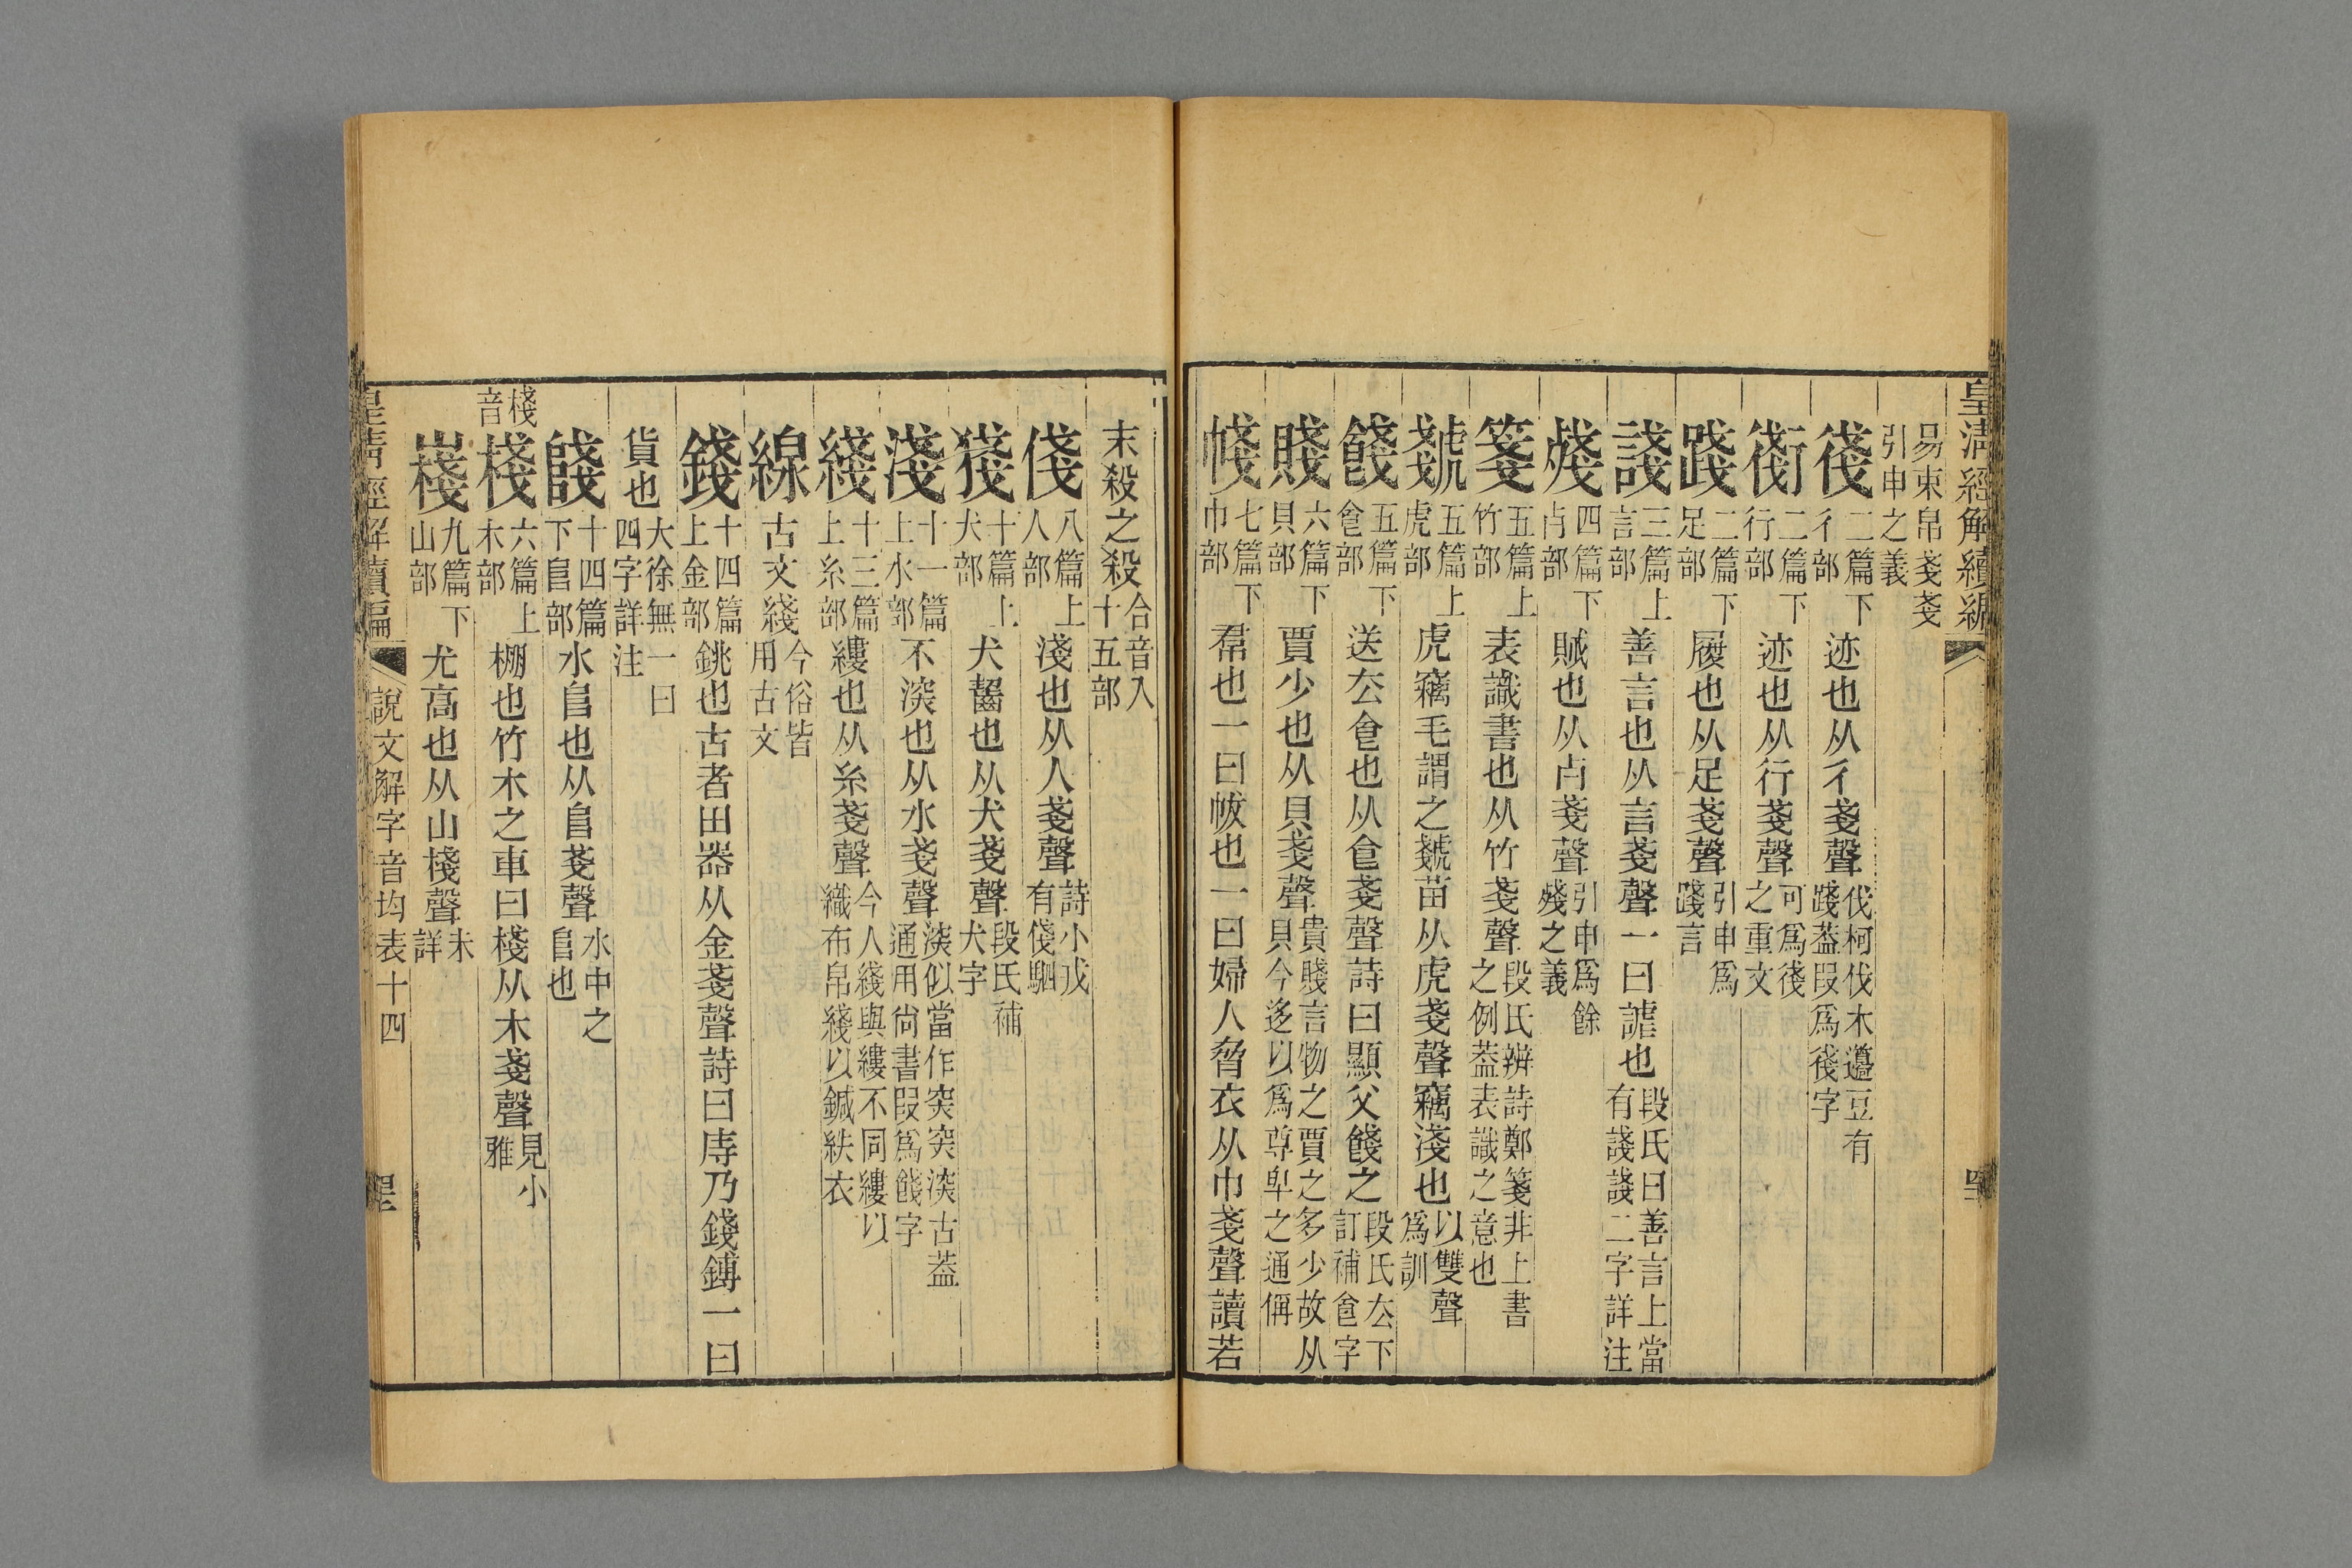 皇清經解續編
易束帛戔戔引申之義
後二篇下彳部迹也从彳戔聲伐柯伐木籩豆有踐葢叚爲後字
衘二篇下行部迹也从行戔聲可爲後之重文
踐二篇下足部履也从足戔聲引申爲踐言
諓三篇上言部善言也从言戔聲一曰謔也段氏曰善言上當有諓諓二字詳注
殘四篇下歺部賊也从歺戔聲引申爲餘殘之義
箋五篇上竹部表識書也从竹戔聲段氏辨詩鄭箋非上書之例葢表識之意也
虥五篇上虎部虎竊毛謂之虥苗从虎戔聲竊淺也以雙聲爲訓
餞五篇下食部送去食也从食戔聲詩曰顯父餞之段氏去下訂補食字
賤六篇下貝部賈少也从貝戔聲貴賤言物之賈之多少故从貝今迻以爲尊卑之通偁
帴七篇下巾部帬也一曰帔也一曰婦人脅衣从巾戔聲讀若
末殺之殺合音入十五部
俴八篇上人部淺也从人戔聲詩小戎有俴駟
㹽十篇上犬部犬齧也从犬戔聲段氏補犬字
淺十一篇上水部不深也从水戔聲深似當作突突深古葢通用尙書叚爲餞字
綫十三篇上糸部縷也从糸戔聲今人綫與縷不同縷以織布帛綫以鍼紩衣
線古文綫今俗皆用古文
錢十四篇上金部銚也古者田器从金戔聲詩曰庤乃錢鎛一曰
貨也大徐無一曰四字詳注
䧖十四篇下𨸏部水𨸏也从𨸏戔聲水中之𨸏也
棧音
棧六篇上木部棚也竹木之車曰棧从木戔聲見小雅
嶘九篇下山部尤高也从山棧聲未詳
皇清經解續編 說文解字音均表十四